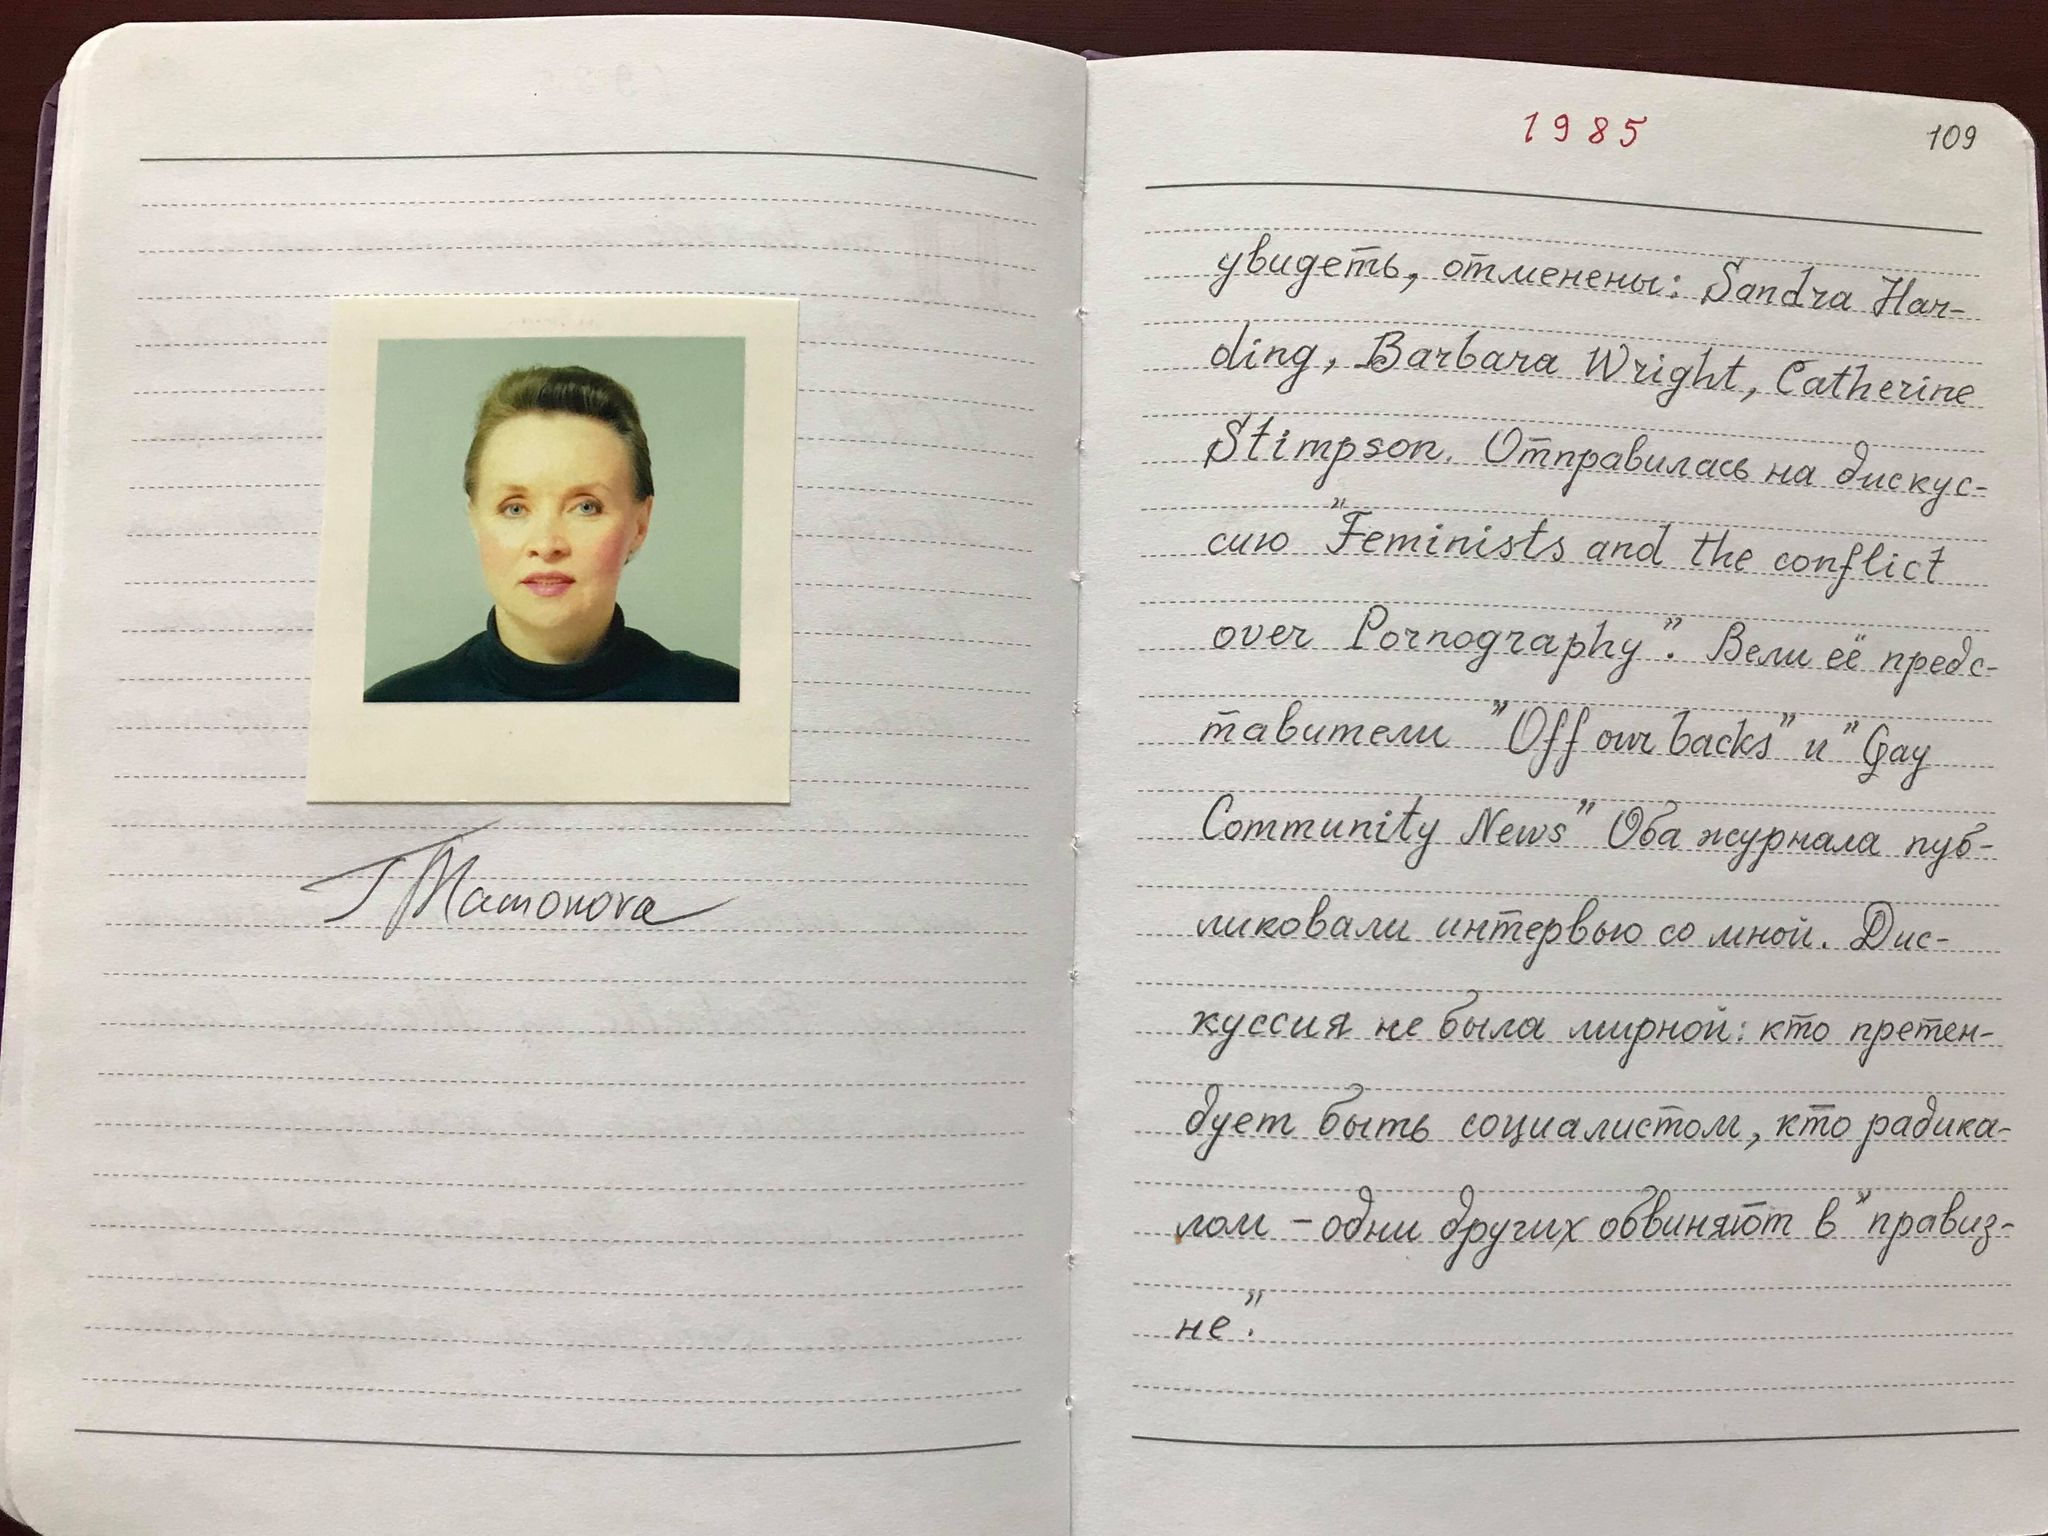 T Mamonova
1985
109
увидеть, отменены: Sandra Har-
ding, Barbara Wright, Catherine
Stimpson. Отправилась на дискус-
сию "Feminists and the conflict
over Pornography". Вели её предс-
тавители "Off our backs" и "Gay
Community News" Оба журнала пуб-
ликовали интервью со мной. Дис-
куссия не была мирной: кто претен-
дует быть социалистом, кто радика-
лом – одни других обвиняют в "правиз-
не".